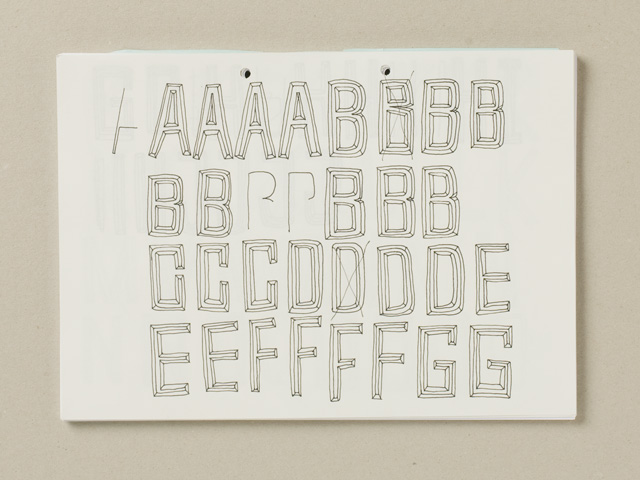 AAAABBBB
BBBBB
CCCDDDDE
EEFFFFGG